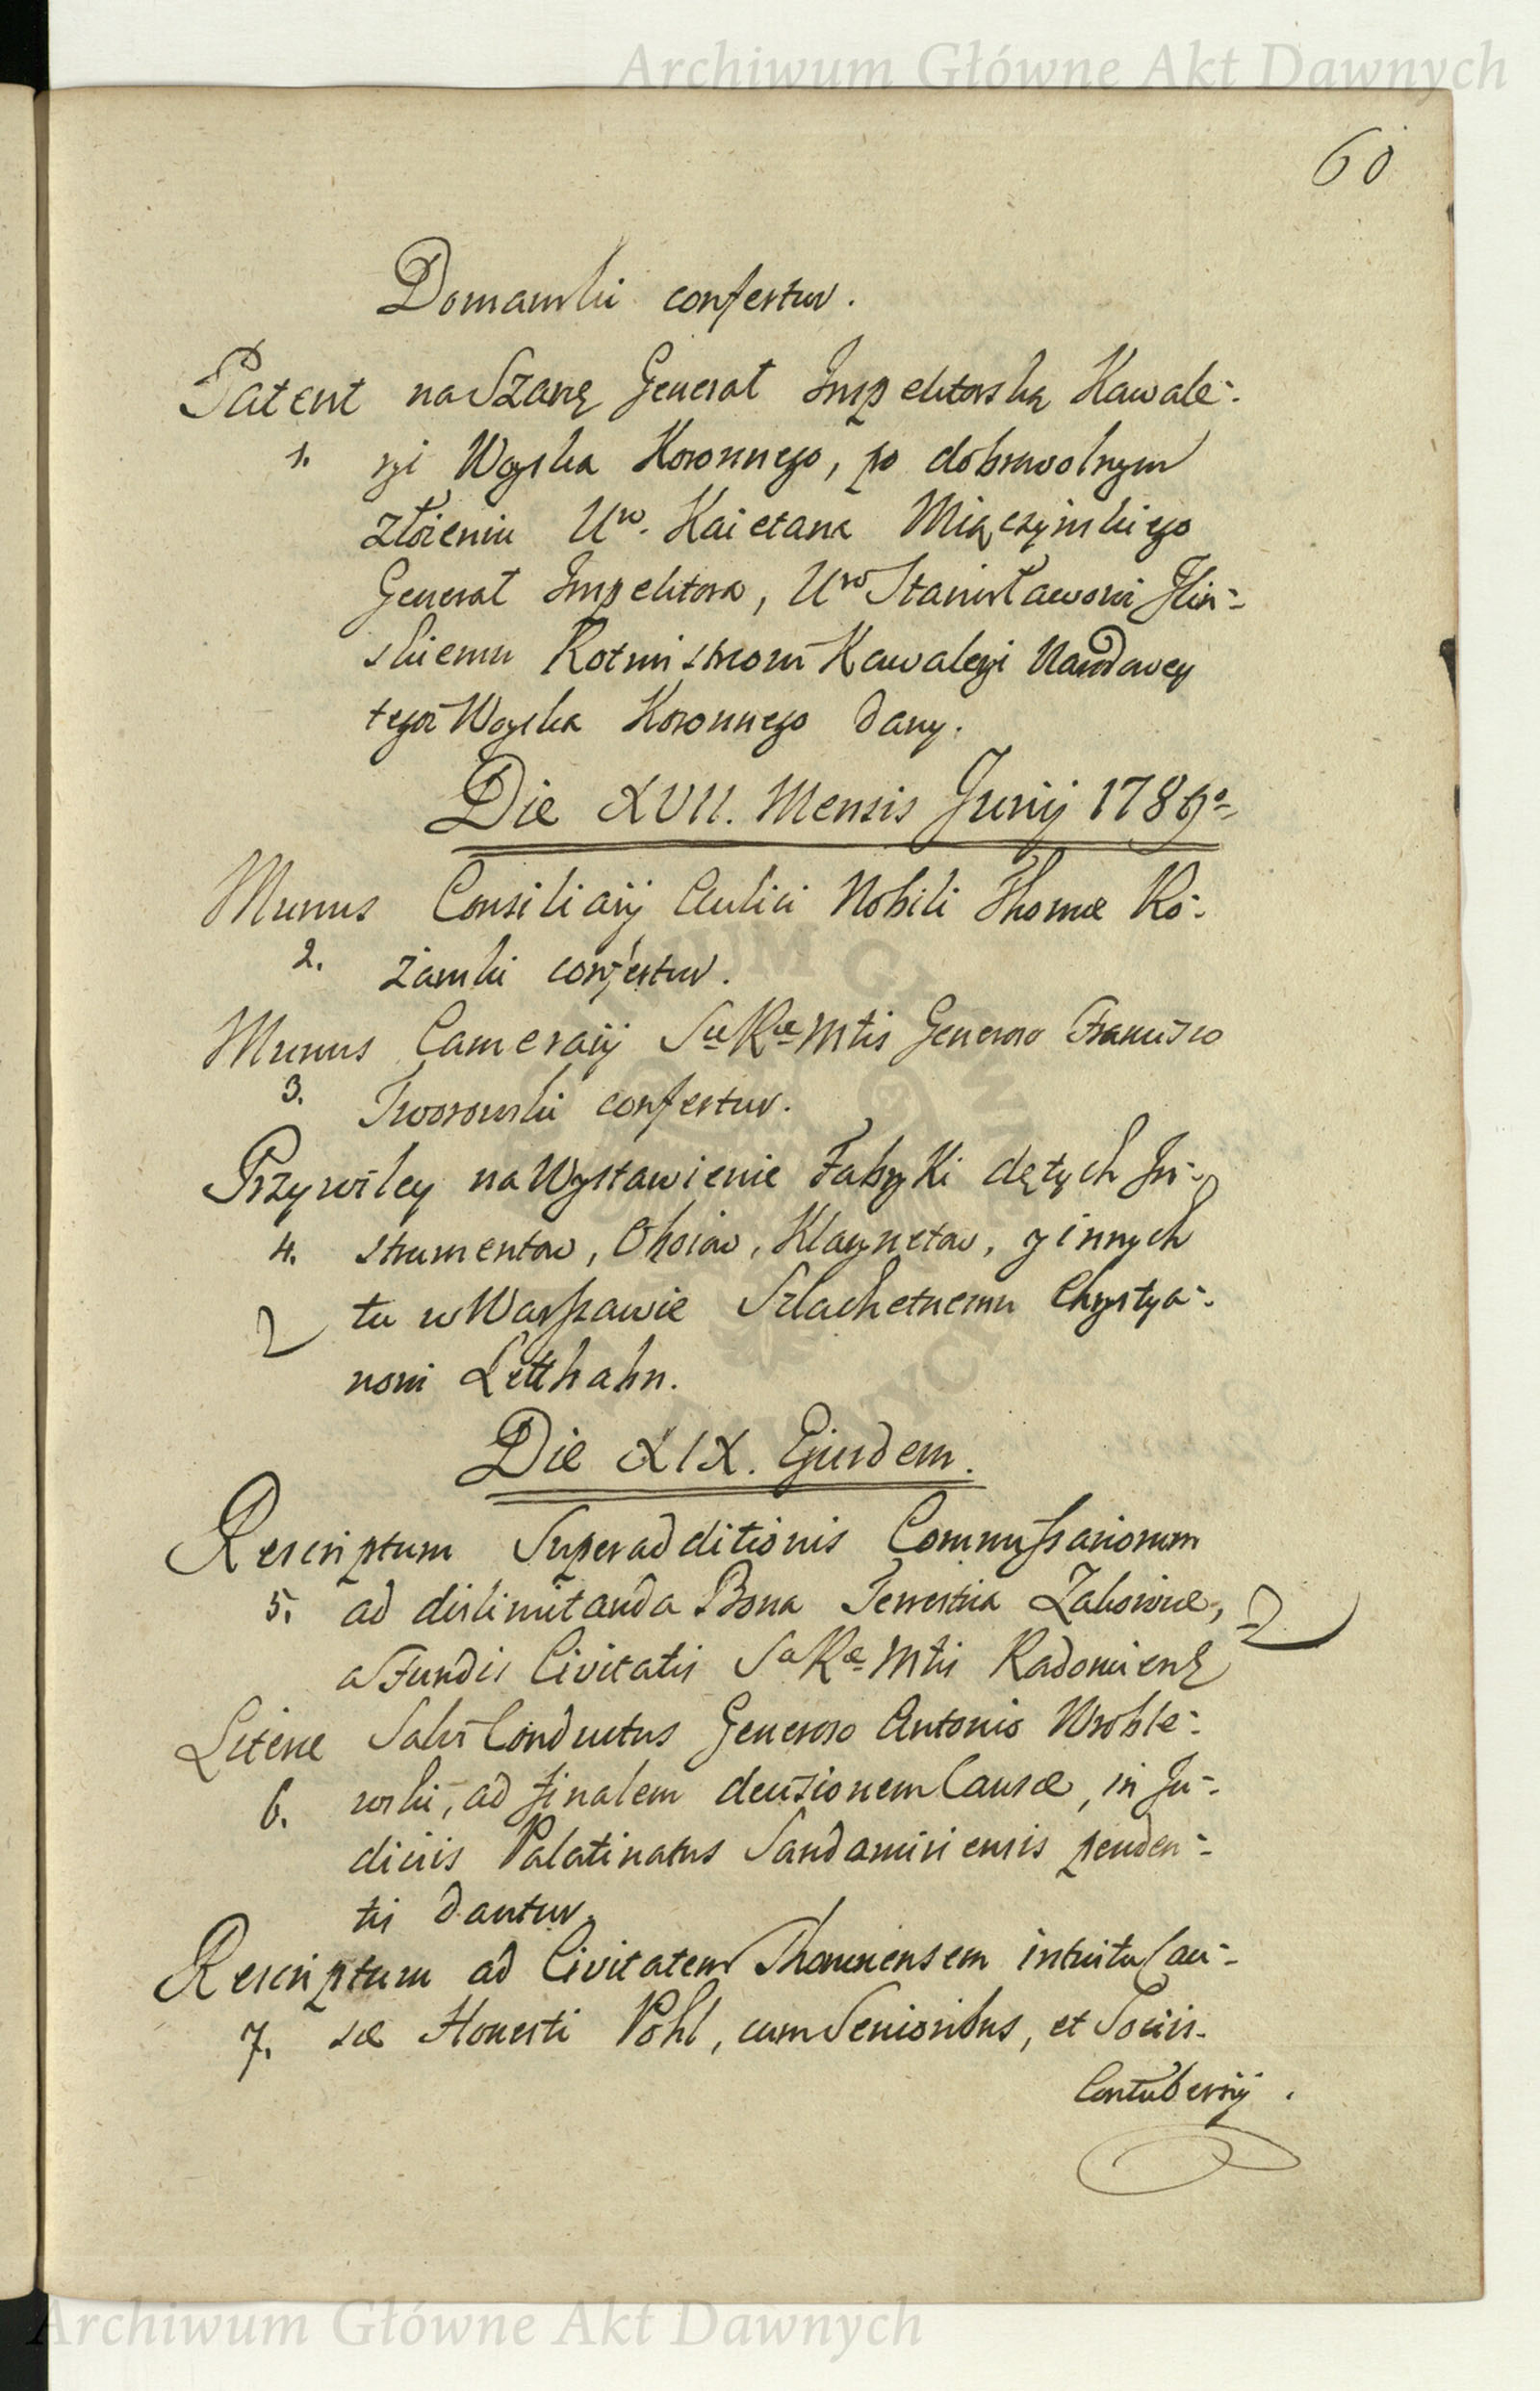 Archiwum Główne Akt Dawnych
60
Domanski confertur.
Patent na Szarzę Generał Inspektorską Kawale-
1. ryi Woyska Koronnego, po dobrowolnym
złożeniu Uro. Kaietana Miączyńskiego
Generał Inspektora, Uro Stanisławowi Iliń-
skiemu Rotmistrzowi Kawaleryi Narodowey
tegoż Woyska Koronnego dany.
Die XVII. Mensis Junij 1789o
Munus Consiliarij Aulici Nobili Thomæ Ro-
2. żanski confertur.
Munus Camerarij Sæ Ræ Mtis Generoso Francisco
3. Tworowski confertur.
Przywiley na Wystawienie Fabryki dętych In-
4. strumentow, Oboiow, Klarynetow, y innych
tu w Warszawie Szlachetnemu Chrystya-
nowi Letthahn.
Die XIX. Ejusdem.
Rescriptum Superadditionis Commissariorum
5. ad dislimitanda Bona Terrestria Zakowice,
a Fundis Civitatis Sa Ræ Mtis Radomiens
Literæ Salvi Conductus Generoso Antonio Wroble-
6. wski, ad finalem decisionem Causæ, in Ju-
diciis Palatinatus Sandomiriensis penden-
tis dantur.
Rescriptum ad Civitatem Thorunensem intuitu Cau-
7. sæ Honesti Pohl, cum Senioribus, et Sociis
Contubernij.
Archiwum Główne Akt Dawnych